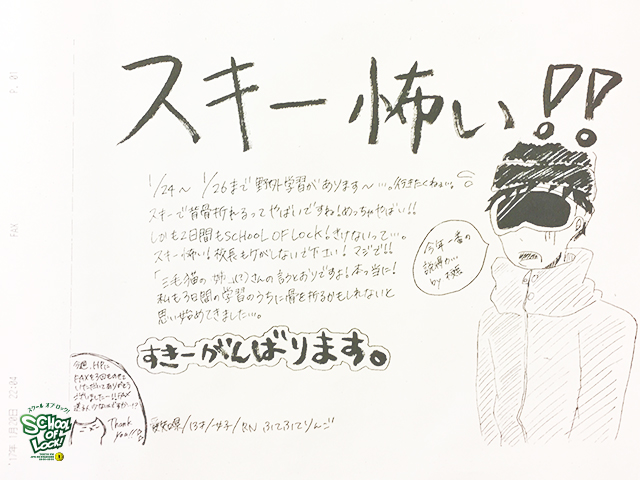 スキー怖い!!
1/24〜1/26まで野外学習があります〜…。行きたくねぇ…。
スキーで背骨折れるってやばいですね!めっちゃやばい!!
しかも2日間もSCHOOL OF LOCK!きけないって…。
スキー怖い!校長もケガしないで下さい!マジで!!
「三毛猫の姉…(?)さんの言うとおりですよ!本当に!
私も3日間の学習のうちに骨を折るかもしれないと
思い始めてきました…。
今年一番の
説得力…
by
すきーがんばります。
今週、HPに
FAXを3回ものせて
いただいてありがとう
ございました〜!!FAX
Thank
You!!
愛知県/13才/女子/RN ふてふてりんご
スクール オブ ロック!
SCHOOL
OF
LOCK!
FAX
P. 01
'17年 1月20日 22:04